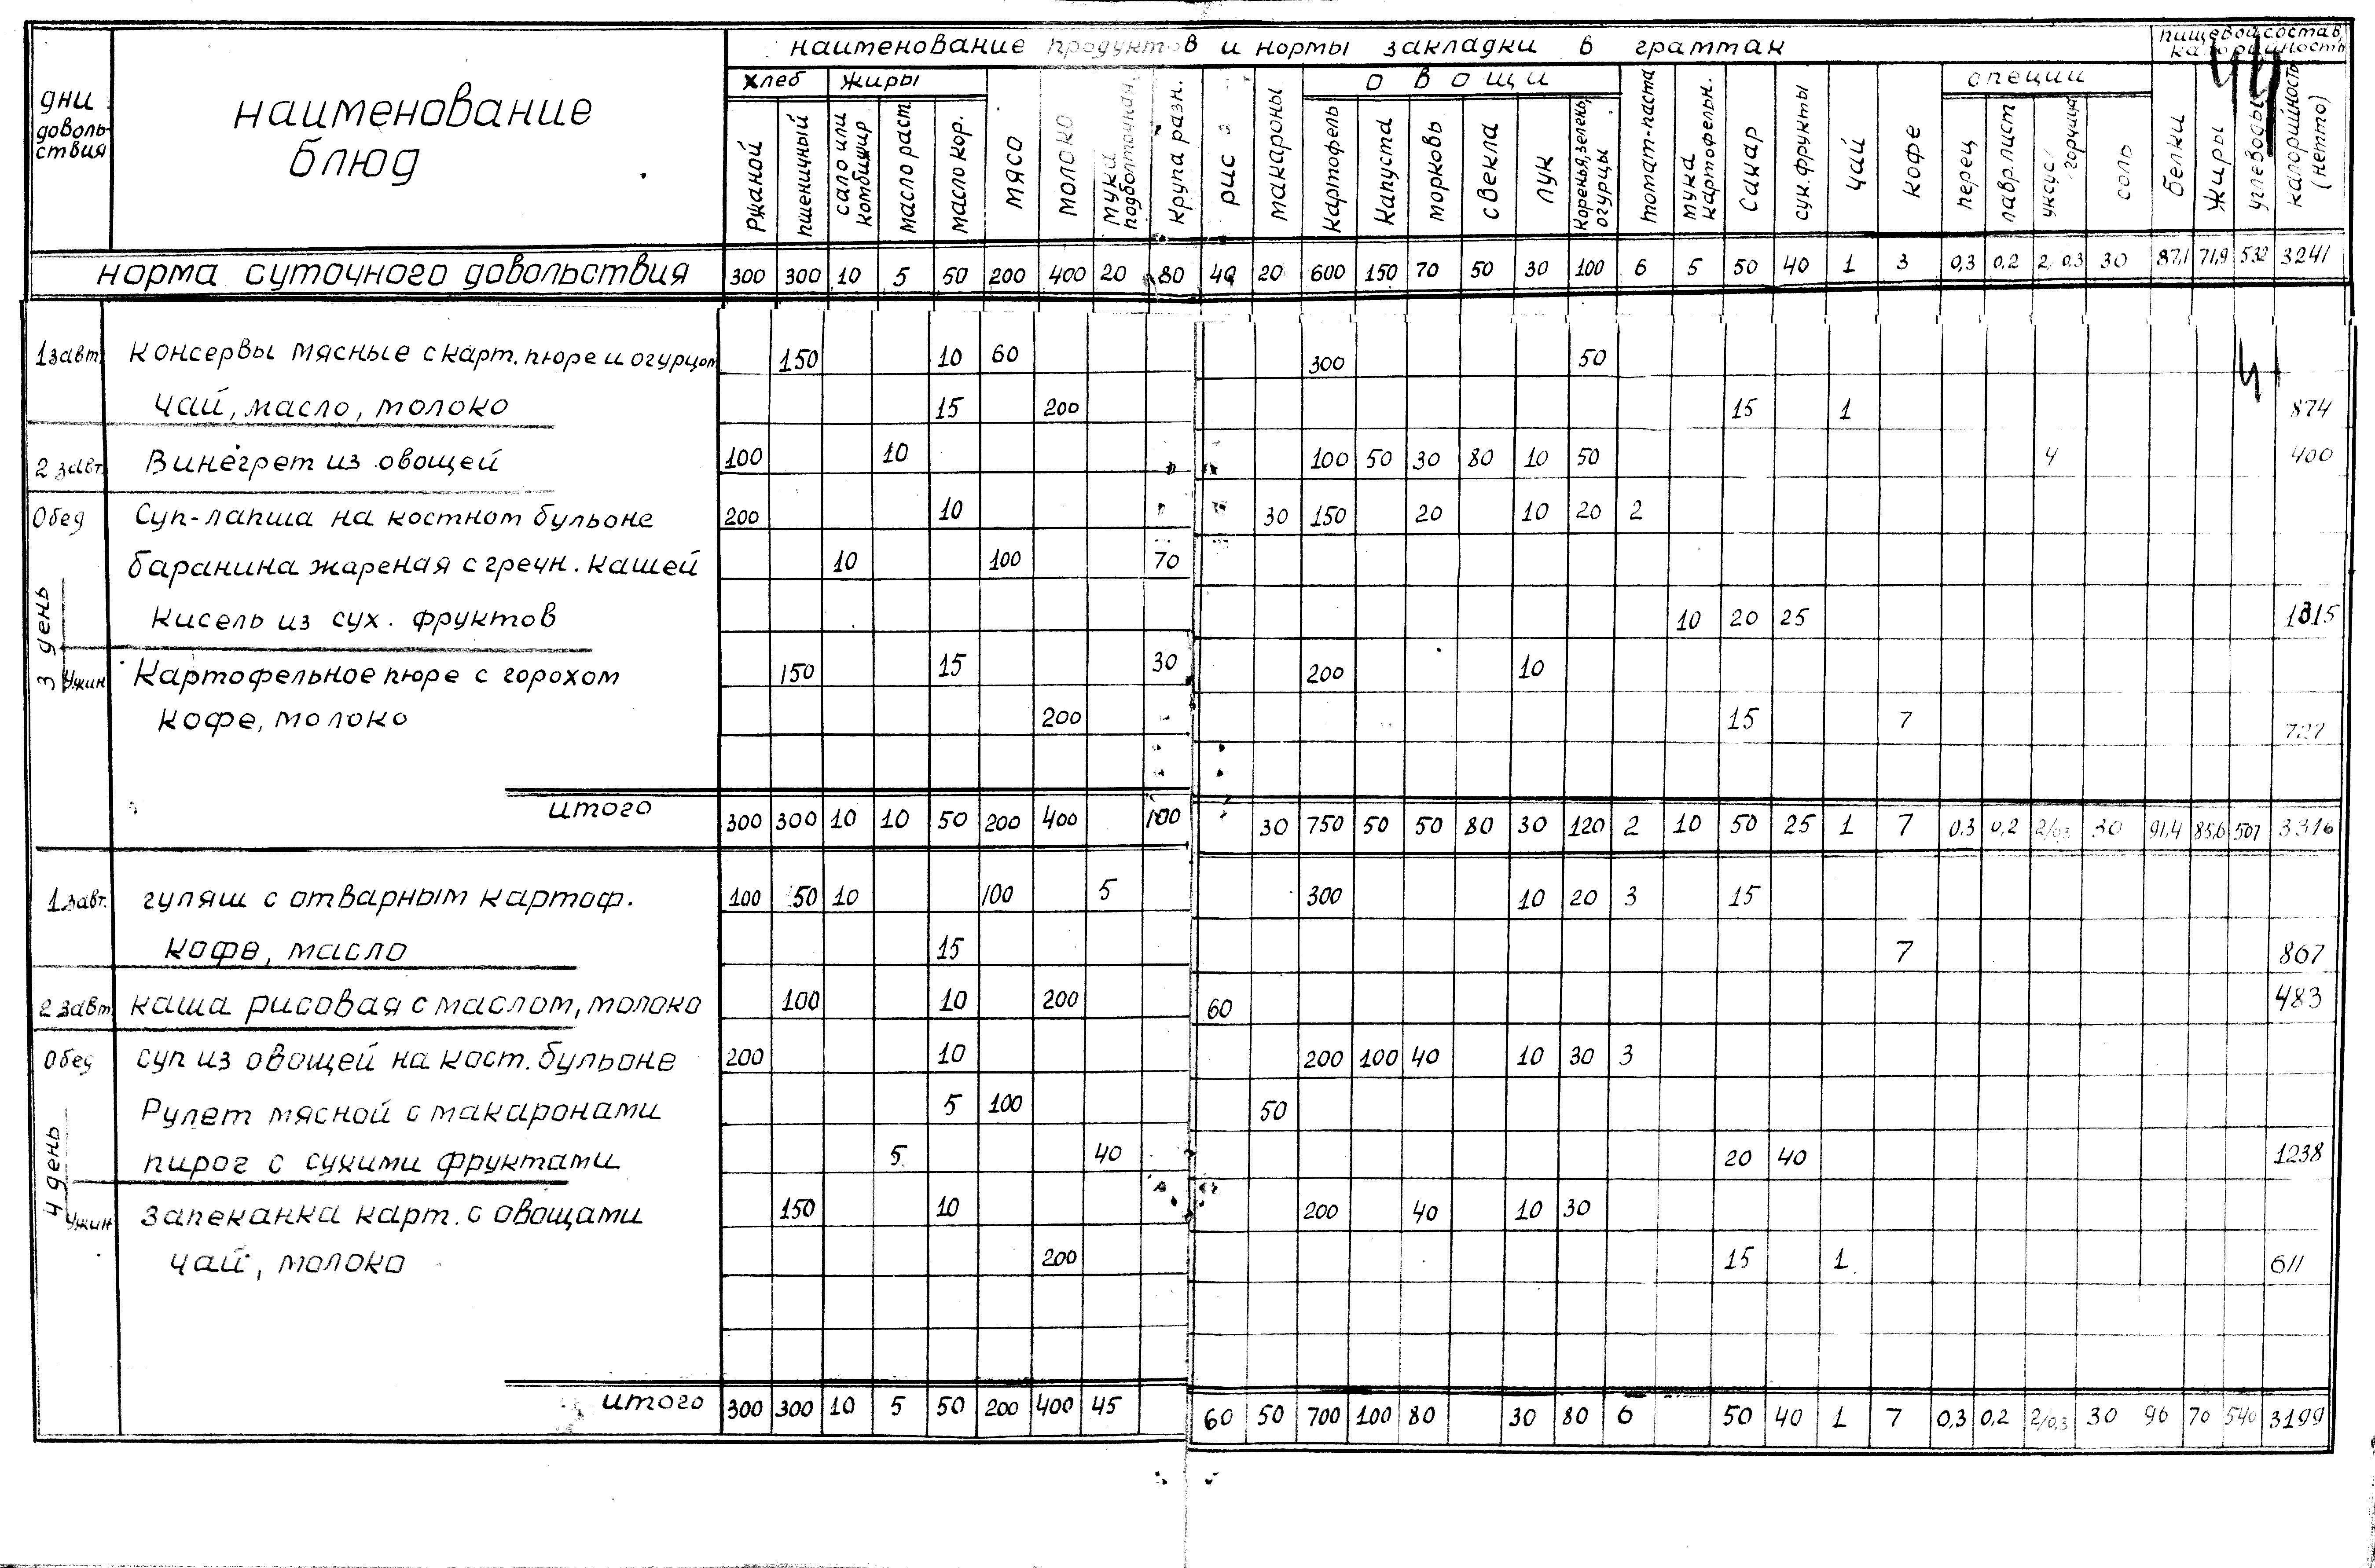 наименование продуктов и нормы закладки в граммах
пищевой состав, калорийность
дни довольствия
наименование блюд
хлеб жиры овощи специи
ржаной пшеничный сало или комбижир масло раст масло кор. мясо молоко мука подболточная крупа разн. рис макароны картофель капуста морковь свекла лук коренья, зелень, огурцы томат-паста мука картофельн. сахар сух.фрукты чай кофе перец лавр.лист уксус горчица соль белки жиры углеводы калорийность (нетто)
норма суточного довольствия 300 300 10 5 50 200 400 20 80 40 20 600 150 70 50 30 100 6 5 50 40 1 3 0,3 0,2 2 0,3 30 87,1 71,9 532 3241
1 завт. Консервы мясные с карт. пюре и огурцом 150 10 60 300 50
чай, масло, молоко 15 200 15 1 874
2 завт. Винегрет из овощей 100 10 100 50 30 80 10 50 4 400
Обед Суп-лапша на костном бульоне 200 10 30 150 20 10 20 2
баранина жареная с гречн. кашей 10 100 70
Кисель из сух. фруктов 10 20 25 1315
3 день
Ужин Картофельное пюре с горохом 150 15 30 200 10
кофе, молоко 200 15 7 727
итого 300 300 10 10 50 200 400 100 30 750 50 50 80 30 120 2 10 50 25 1 7 0,3 0,2 2/0,3 30 91,4 85,6 507 3316
1 завт. гуляш с отварным картоф. 100 50 10 100 5 300 10 20 3 15
кофе, масло 15 7 867
2 завт. каша рисовая с маслом, молоко 100 10 200 60 483
Обед суп из овощей на кост. бульоне 200 10 200 100 40 10 30 3
Рулет мясной с макаронами 5 100 50
пирог с сухими фруктами 5 40 20 40 1238
4 день
Ужин запеканка карт. с овощами 150 10 200 40 10 30
чай, молоко 200 15 1 611
итого 300 300 10 5 50 200 400 45 60 50 700 100 80 30 80 6 50 40 1 7 0,3 0,2 2/0,3 30 96 70 540 3199